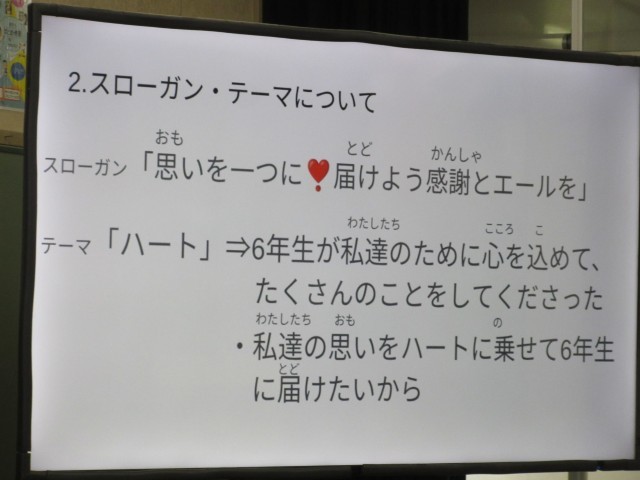 2.スローガン・テーマについて
おも とど かんしゃ
スローガン「思いを一つに❣届けよう感謝とエールを」
わたしたち こころ こ
テーマ「ハート」⇒6年生が私達のために心を込めて、
たくさんのことをしてくださった
わたしたち おも の
・私達の思いをハートに乗せて6年生
とど
に届けたいから